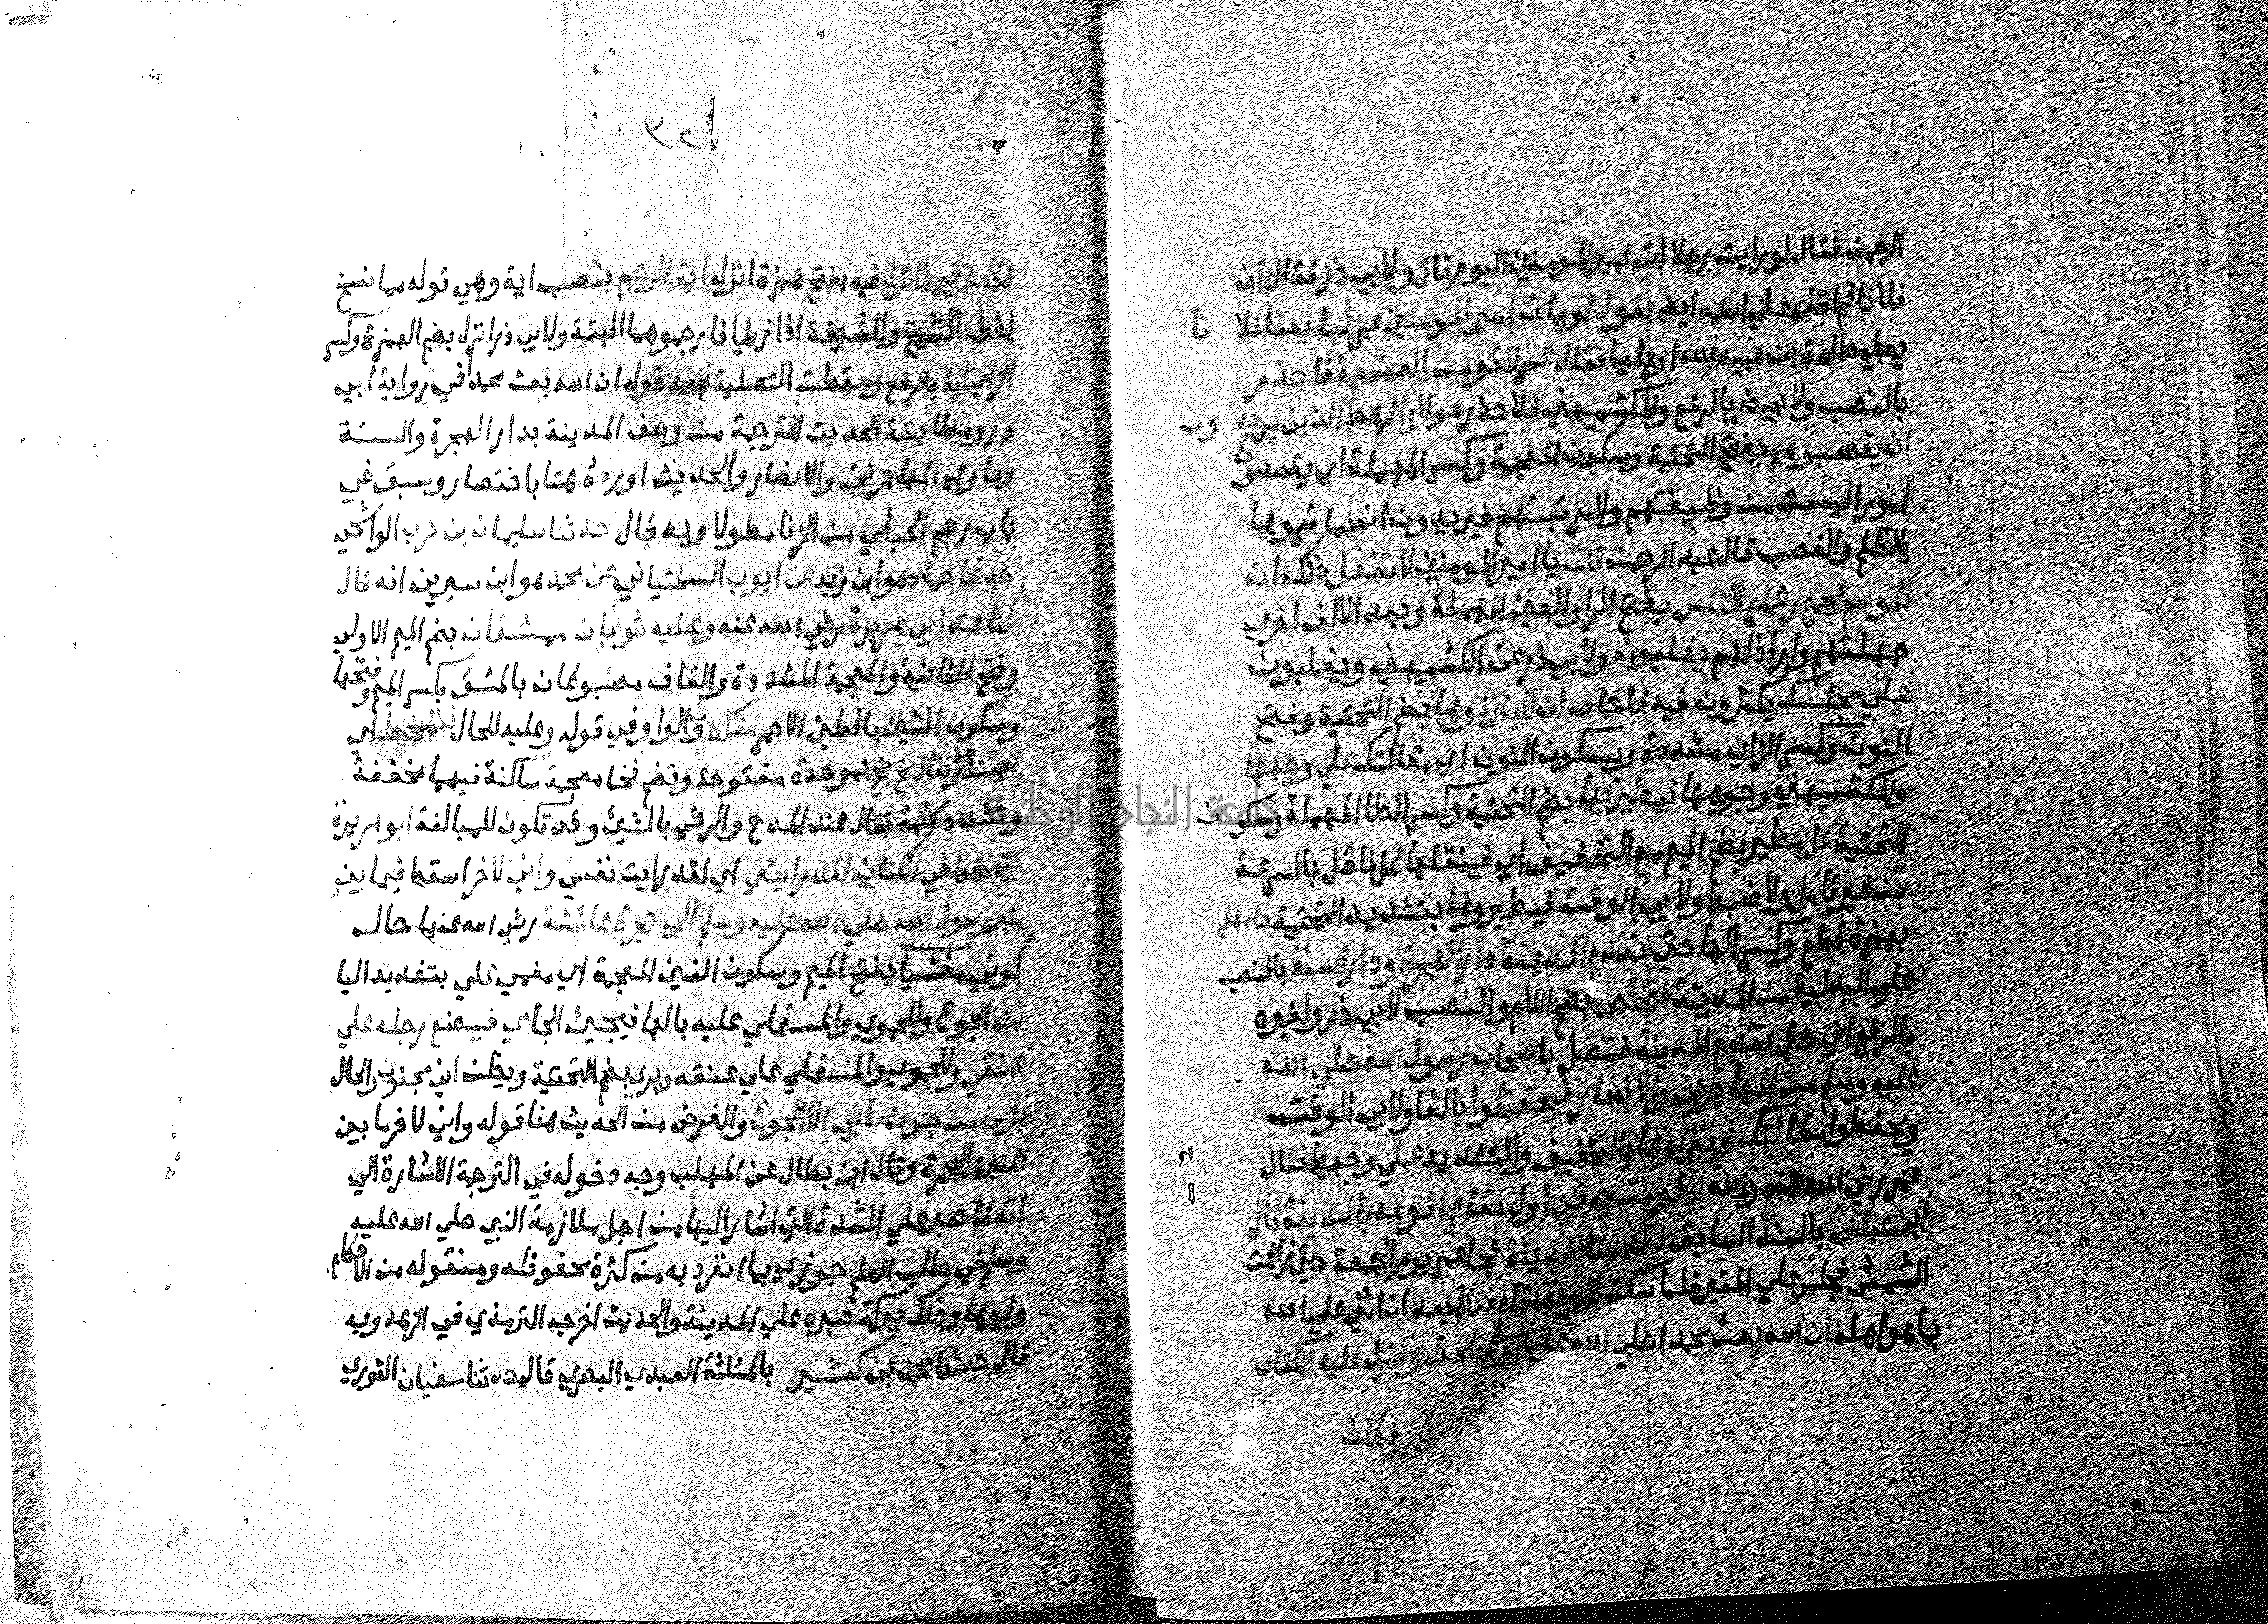 الرحمن فقال لو رايت رجلا اتي امير المومنين اليوم قال ولابي ذر فقال ان
فلانا لم اقف علي اسمه ايضا يقول لو مات امير المومنين عمر لبايعنا فلا نا
يعني طلحة بن عبيد الله او عليا فقال عمر لاقومن العشية فاحذر
بالنصب ولابي ذر بالرفع وللكشميهني فلاحذر هولاء الرهط الذين يريد ون
ان يغصبوهم بفتح التحتية وسكون المعجمة وكسر المهملة اي يقصدون
امورا ليست من وظيفتهم ولا مرتبتهم فيريدون ان يباشروها
بالظلم والغصب قال عبد الرحمن قلت يا امير المومنين لا تفعل ذلك فان
الموسم يجمع رعاع الناس بفتح الرا والعين المهملة وبعد الالف اخري
جهلتهم واراذلهم يغلبون ولابي ذر عن الكشميهني ويغلبون
علي مجلسك يكثرون فيه فاخاف ان لا ينزلوها بضم التحتية وفتح
النون وكسر الزاي مشددة وبسكون النون اي مقالتك علي وجهها
وللكشميهني وجوهها فيطير بها بضم التحتية وكسر الطا المهملة وسكون
التحتية كل مطير بضم الميم مع التخفيف اي فينقلها كل ناقل بالسرعة
من غير تامل ولا ضبط ولابي الوقت فيطيرونها بتشديد التحتية فامهل
بهمزة قطع وكسر الها حتي تقدم المدينة دار الهجرة ودار السنة بالنصب
علي البدلية من المدينة فتخلص بضم اللام والنصب لابي ذر ولغيره
بالرفع اي حتي تقدم المدينة فتصل باصحاب رسول الله صلي الله
عليه وسلم من المهاجرين والانصار فيحفظوا بالفا ولابي الوقت
ويحفظوا مقالتك وينزلوها بالتخفيف والتشديد علي وجهها فقال
عمر رضي الله عنه والله لاقومن به في اول مقام اقومه بالمدينة قال
ابن عباس بالسند السابق فقدمنا المدينة فجا عمر يوم الجمعة حين زاغت
الشمس فجلس علي المنبر فلما سكت الموذن قام فقال بعد ان اثني علي الله
بما هو اهله ان الله بعث محمدا صلي الله عليه وسلم بالحق وانزل عليه الكتاب
فكان
٣٢
فكان فيما انزل فيه بفتح همزة انزل اية الرجم بنصب اية وهي قوله مما نسخ
لفظه الشيخ والشيخة اذا زنيا فارجموهما البتة ولابي ذر انزل بضم الهمزة وكسر
الزاي اية بالرفع وسقطت التصلية بعد قوله ان الله بعث محمدا في رواية ابي
ذر ومطابقة الحديث للترجمة من وصف المدينة بدار الهجرة والسنة
وماوي المهاجرين والانصار والحديث اورده هنا باختصار وسبق في
باب رجم الحبلي من الزنا مطولا وبه قال حدثنا سليمان بن حرب الواشحي
حدثنا حماد هو ابن زيد عن ايوب السختياني عن محمد هو ابن سيرين انه قال
كنا عند ابي هريرة رضي الله عنه وعليه ثوبان ممشقان بضم الميم الاولي
وفتح الثانية والمعجمة المشددة والقاف مصبوغان بالمشق بكسر الميم وفتحها
وسكون الشين بالطين الاحمر من كتان والواو في قوله وعليه للحال فتمخط اي
استنثر فقال بخ بخ بموحدة مفتوحة وتضم فخا معجمة ساكنة فيهما مخففة
وتشدد كلمة تقال عند المدح والرضي بالشيئ وقد تكون للمبالغة ابو هريرة
يتمخط في الكتان لقد رايتني اي لقد رايت نفسي واني لاخر اسقط فيما بين
منبر رسول الله صلي الله عليه وسلم الي حجرة عائشة رضي الله عنها حال
كوني مغشيا بفتح الميم وسكون الغين المعجمة اي مغمي علي بتشديد اليا
من الجوع وللحموي والمستملي عليه بالها فيجيئ الجاي فيضع رجله علي
عنقي وللحموي والمستملي علي عنقه ويري بضم التحتية ويظن اني مجنون والحال
ما بي من جنون ما بي الا الجوع والغرض من الحديث هنا قوله واني لاخر ما بين
المنبر والحجرة وقال ابن بطال عن المهلب وجه دخوله في الترجمة الاشارة الي
انه لما صبر علي الشدة التي اشار اليها من اجل ملازمة النبي صلي الله عليه
وسلم في طلب العلم جوزي بما انفرد به من كثرة محفوظه ومنقوله من الاحكام
وغيرها وذلك ببركة صبره علي المدينة والحديث اخرجه الترمذي في الزهد وبه
قال حدثنا محمد بن كثير بالمثلثة العبدي البصري قال حدثنا سفيان الثوري